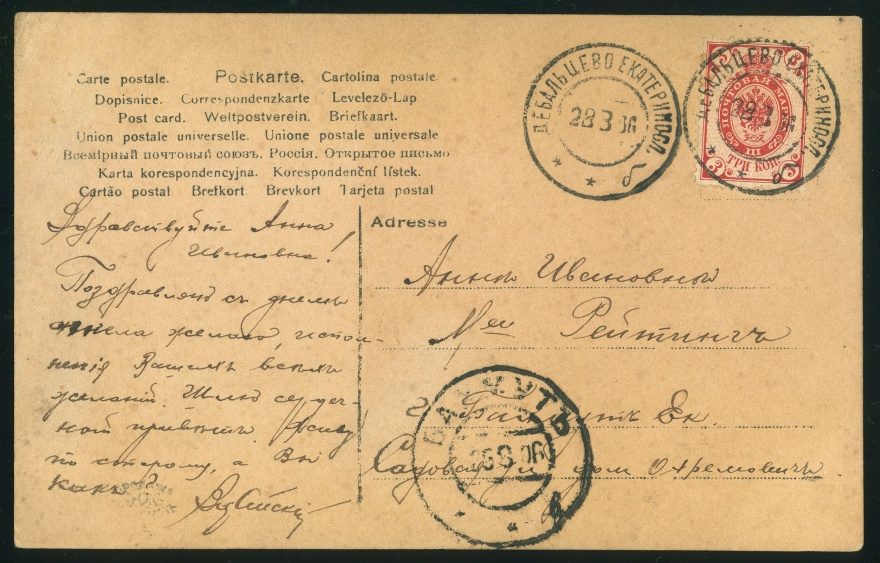 Carte postale. Postkarte. Cartolina postale
Dopisnice. Correspondenzkarte Levelező-Lap
Post card. Weltpostverein. Briefkaart.
Union postale universelle. Unione postale universale
Всемірный почтовый союзъ. Россія. Открытое письмо
Karta korespondencyjna. Korespondenční lístek.
Cartão postal Brefkort Brevkort Tarjeta postal
Adresse
ДЕБАЛЬЦЕВО ЕКАТЕРИНОСЛ.
28 3 06
б
ДЕБАЛЬЦЕВО ЕКАТЕРИНОСЛ.
28 3 06
б
ПОЧТОВАЯ МАРКА
III
3 ТРИ КОП. 3
Здравствуйте Анна
Ивановна!
Поздравляю съ днемъ
ангела желаю испол-
ненія Вашихъ всѣхъ
желаній. Шлю сердеч-
ной привѣтъ. Живу
по старому, а Вы
какъ
Аннѣ Ивановнѣ
Рейтингъ
г. Бахмутъ Ек.
Садовая ул дом Охремовичъ
БАХМУТЪ
28 3 06